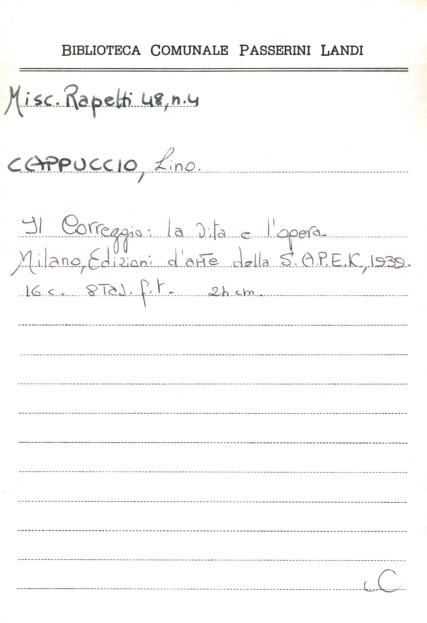 BIBLIOTECA COMUNALE PASSERINI LANDI
Misc. Rapetti 48, n. 4
CAPPUCCIO, Lino.
Il Correggio: la vita e l'opera.
Milano, Edizioni d'arte della S.A.P.E.K., 1939.
16 c. 8 Tav. f.t. 24 cm.
C